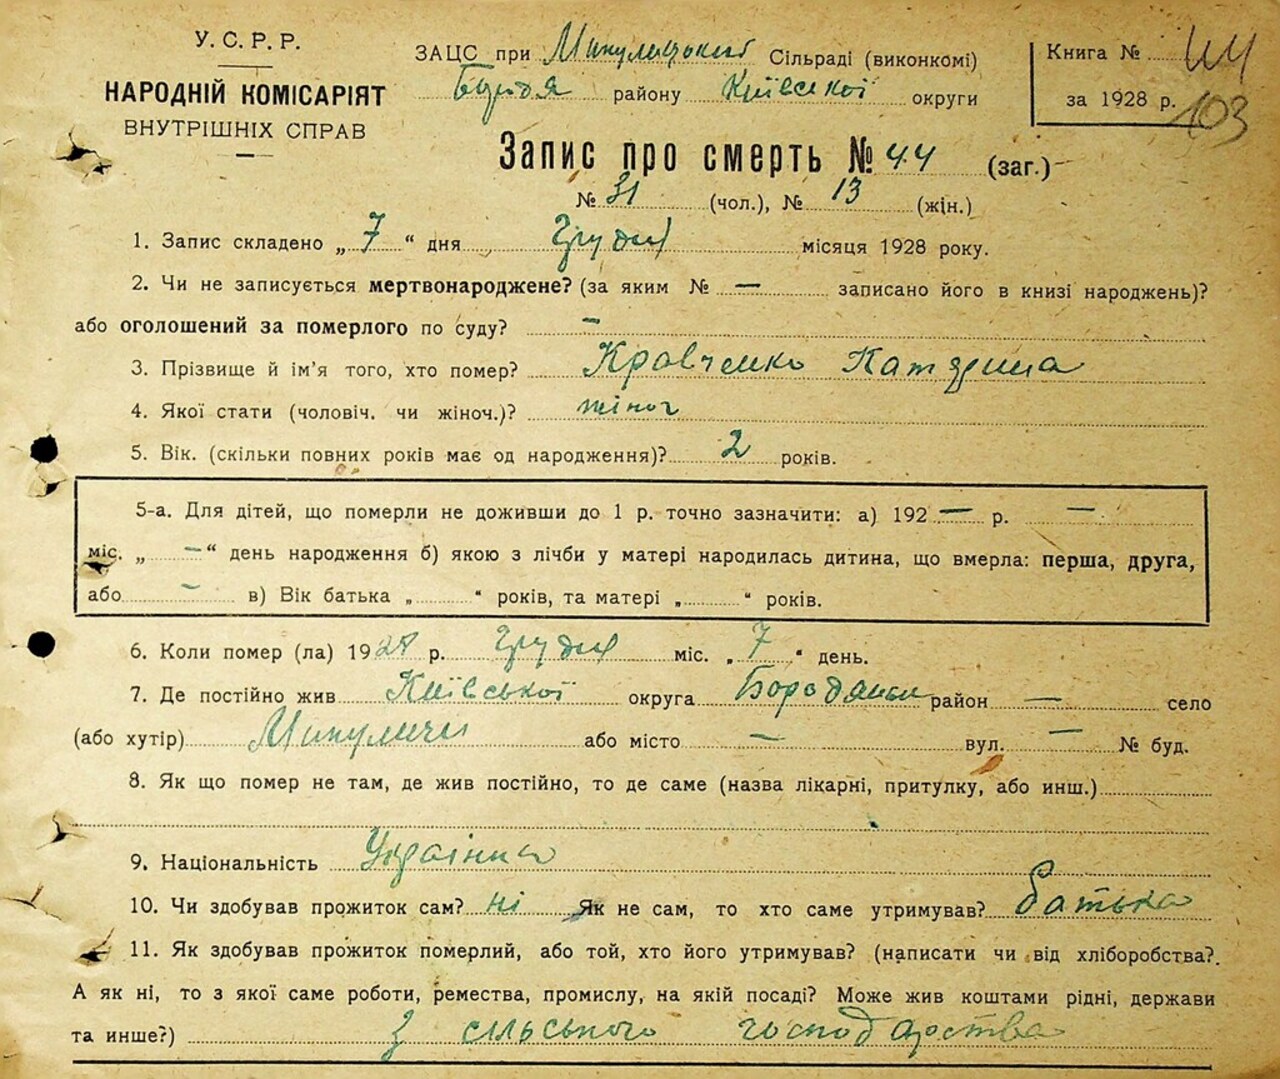 У.С.Р.Р.
НАРОДНІЙ КОМІСАРІЯТ
ВНУТРІШНІХ СПРАВ
ЗАЦС при Микулицької Сільраді (виконкомі)
Бородя району Київської округи
Книга №
за 1928 р. 103
Запис про смерть № 44 (заг.)
№ 31 (чол.), № 13 (жін.)
1. Запис складено „ 7 “ дня Грудня місяця 1928 року.
2. Чи не записується мертвонароджене? (за яким № — записано його в книзі народжень)?
або оголошений за померлого по суду? —
3. Прізвище й ім'я того, хто помер? Кравченко Катярина
4. Якої стати (чоловіч. чи жіноч.)? жіноч
5. Вік. (скільки повних років має од народження)? 2 років.
5-а. Для дітей, що померли не доживши до 1 р. точно зазначити: а) 192 — р. —
міс. „ — “ день народження б) якою з лічби у матері народилась дитина, що вмерла: перша, друга,
або — в) Вік батька „ “ років, та матері „ “ років.
6. Коли помер (ла) 1928 р. Грудня міс. „ 7 “ день.
7. Де постійно жив Київської округа Бородянськ район — село
(або хутір) Микуличи або місто — вул. — № буд.
8. Як що помер не там, де жив постійно, то де саме (назва лікарні, притулку, або инш.)
9. Національність Українка
10. Чи здобував прожиток сам? ні Як не сам, то хто саме утримував? батька
11. Як здобував прожиток померлий, або той, хто його утримував? (написати чи від хліборобства?.
А як ні, то з якої саме роботи, ремества, промислу, на якій посаді? Може жив коштами рідні, держави
та инше?) з сільського господарства